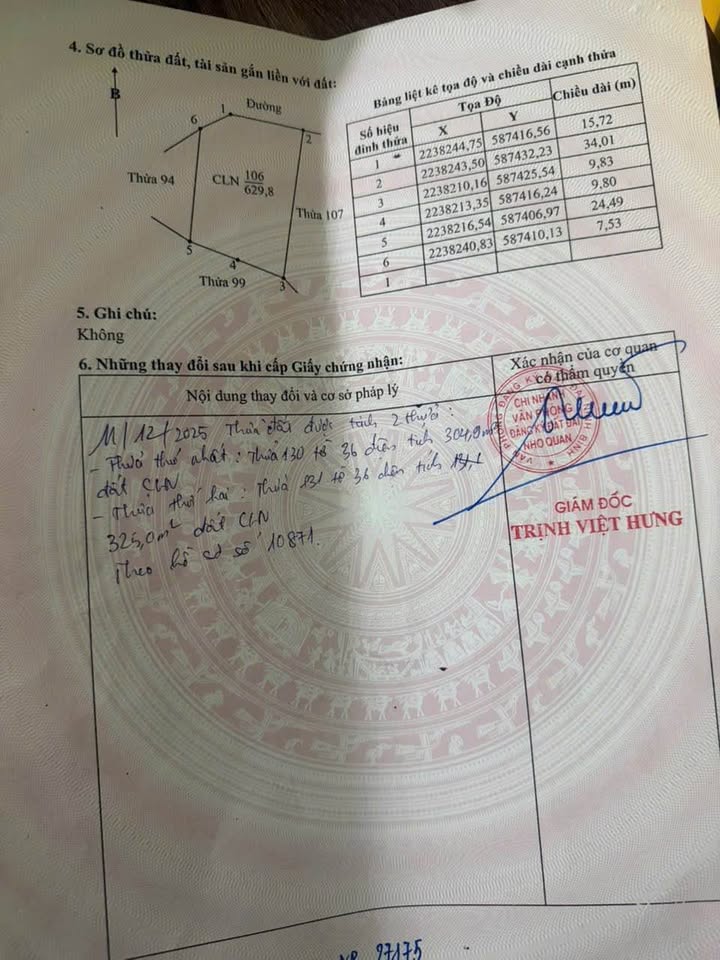 4. Sơ đồ thửa đất, tài sản gắn liền với đất:
B
Đường
1
2
6
Thửa 94
CLN 106/629,8
Thửa 107
5
4
3
Thửa 99
Bảng liệt kê tọa độ và chiều dài cạnh thửa
Số hiệu đỉnh thửa
Tọa Độ
Chiều dài (m)
X
Y
1 2238244,75 587416,56
15,72
2 2238243,50 587432,23
34,01
3 2238210,16 587425,54
9,83
4 2238213,35 587416,24
9,80
5 2238216,54 587406,97
24,49
6 2238240,83 587410,13
7,53
1
5. Ghi chú:
Không
6. Những thay đổi sau khi cấp Giấy chứng nhận:
Nội dung thay đổi và cơ sở pháp lý
Xác nhận của cơ quan
có thẩm quyền
11/12/2025 Thửa đất được tách 2 thửa:
- Thửa thứ nhất: Thửa 130 tờ 36 diện tích 304,8m²
đất CLN
- Thửa thứ hai: Thửa 131 tờ 36 diện tích
325,0m² đất CLN
Theo hồ cơ số 10871.
CHI NHÁNH
VĂN PHÒNG
ĐĂNG KÝ ĐẤT ĐAI
NHO QUAN
GIÁM ĐỐC
TRỊNH VIỆT HƯNG
27175